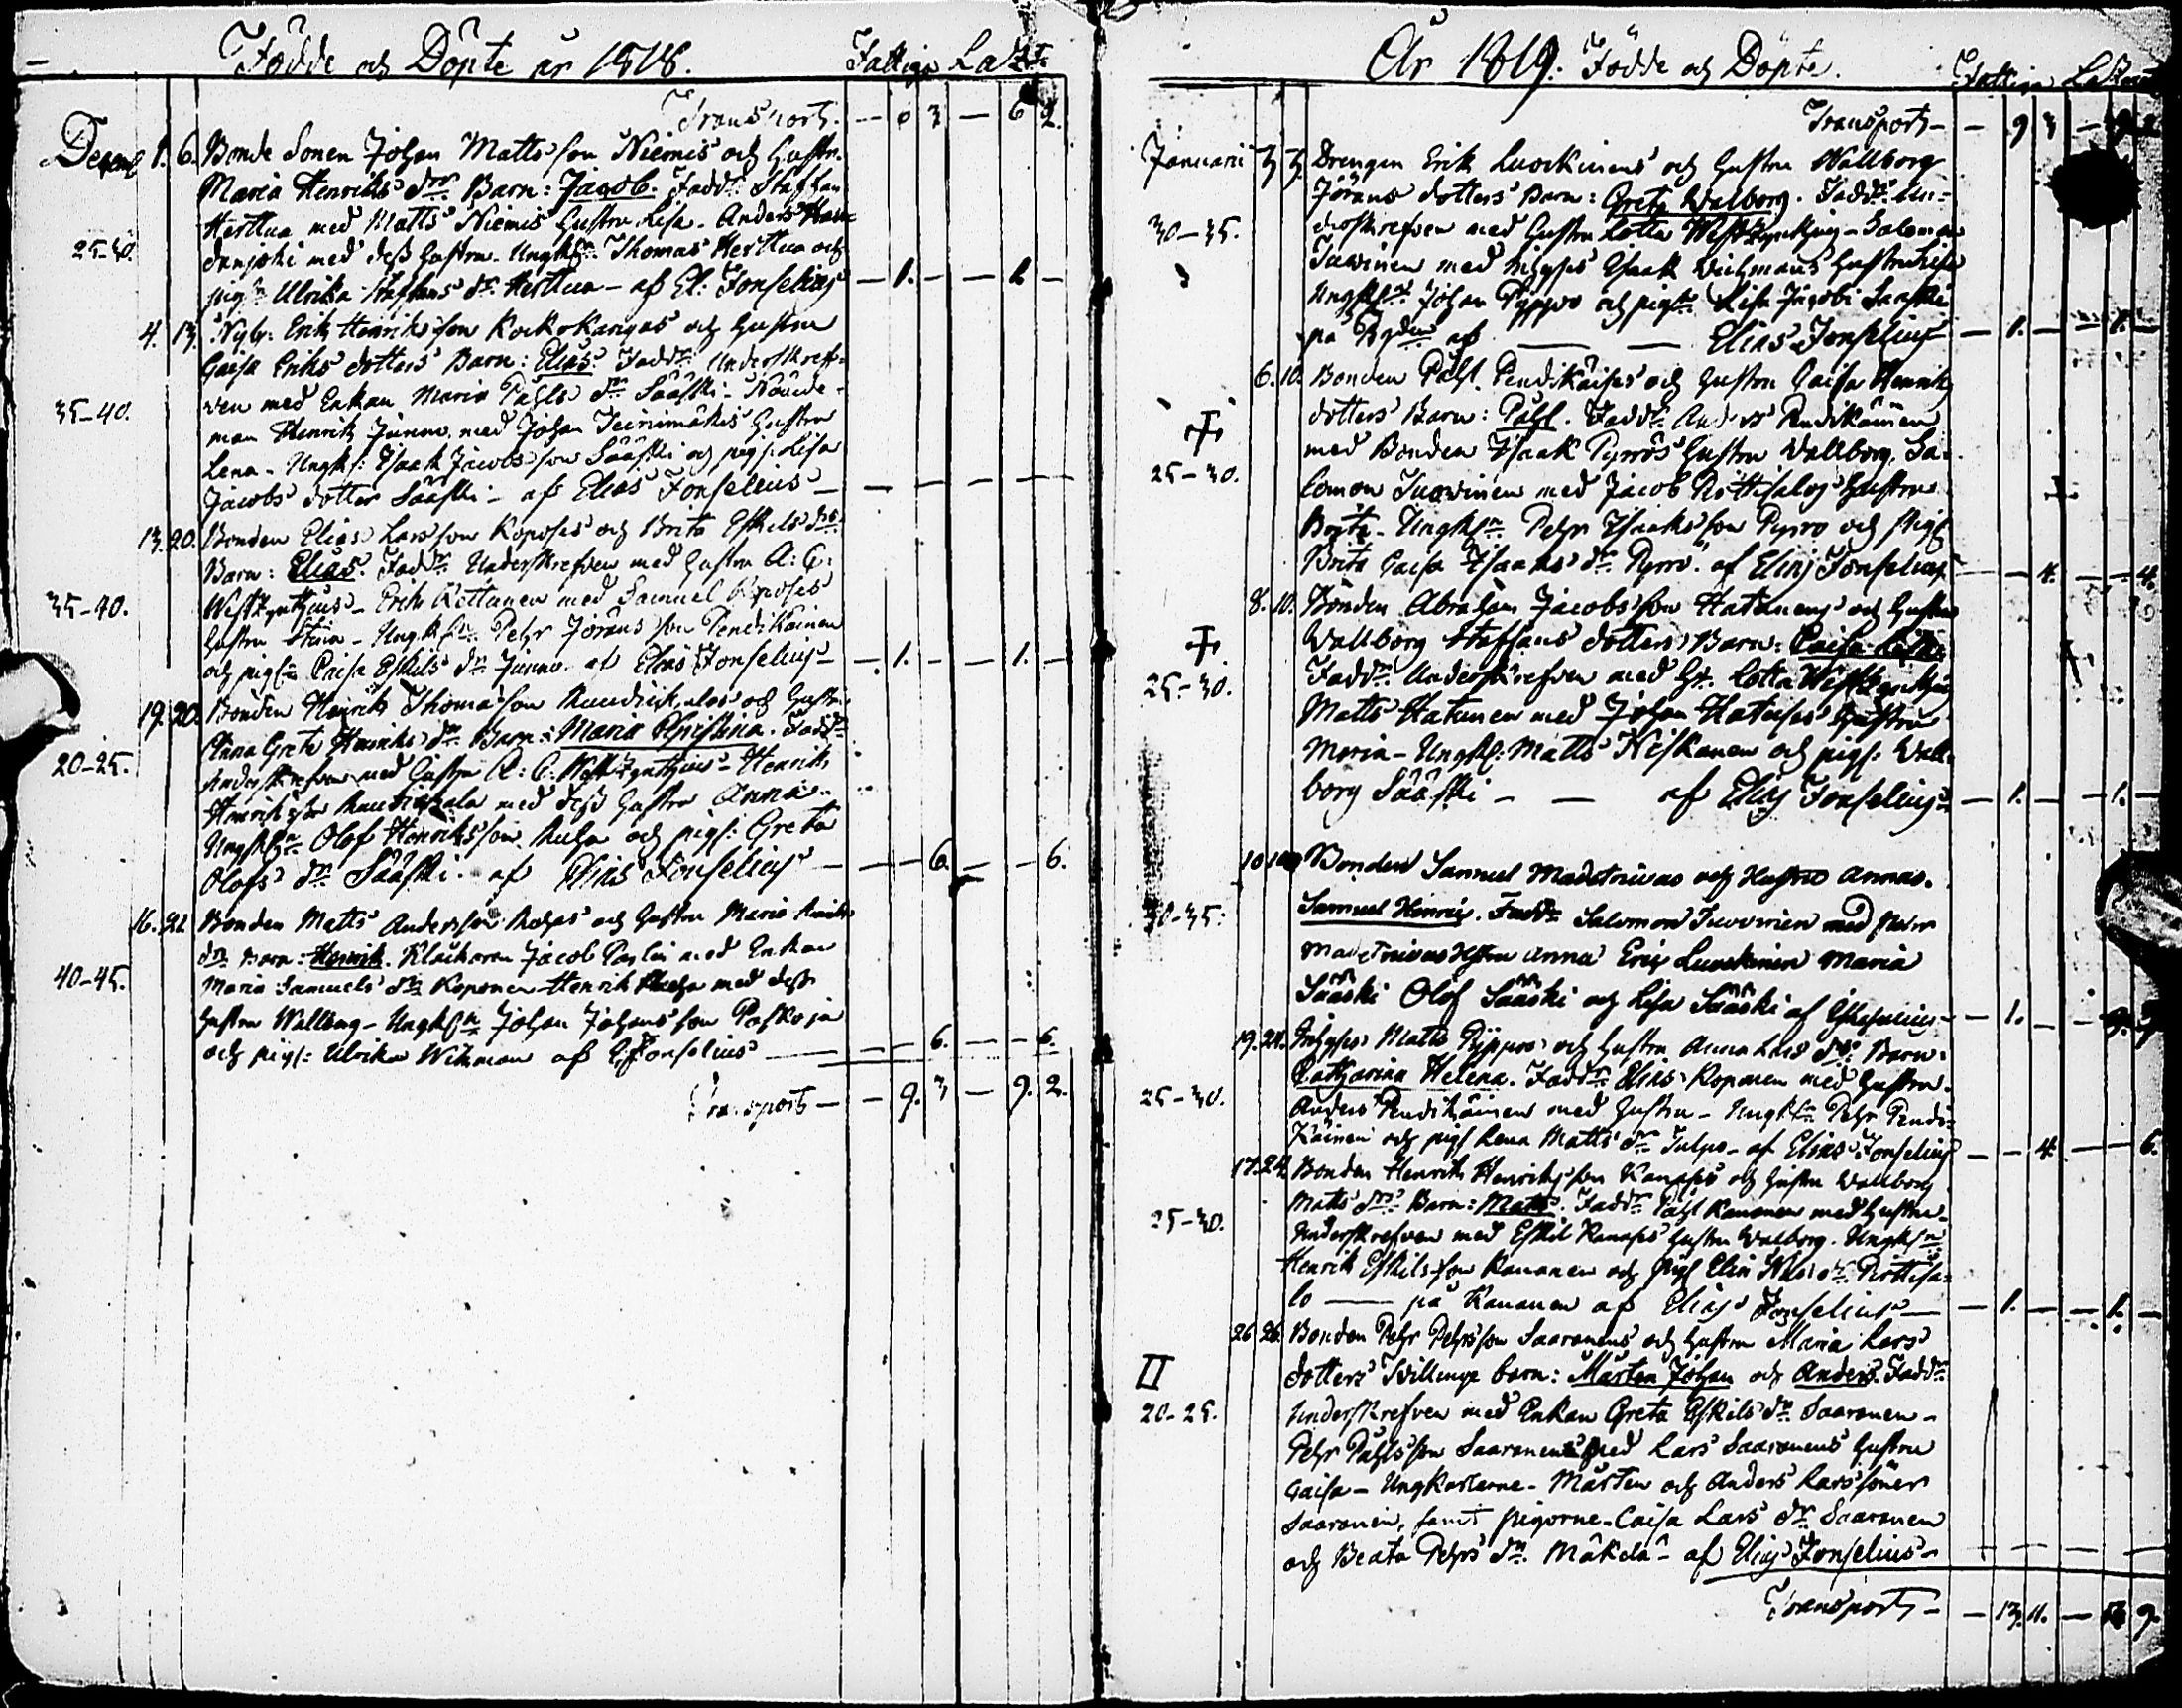 Födde och Döpte år 1818. Fattige Lazt.
Transport. — 6 3 — 6 2.
Decemb 1. 6. Bonde Sonen Johan Matts son Niemis och Hustr.
Maria Henriks dr. Barn: Jacob. Fadd. Staffan
Herttua med Matts Niemis Hustru Lisa. Anders
25-30. med dess Hustru. Ungk. Thomas Herttua och
pig. Ulrika Staffans dr. Herttua — af El: Fonselius — 1. — — 1. —
4. 13. Nyb. Erik Henriks son Kockokangas och Hustru
Caisa Eriks dotters Barn: Elias. Fadd. Underskref-
35-40. ven med Enkan Maria Påhls dr. Sääski
man Henrik Junno med Johan Hustru
Lena - Ungk: Isaak Jacobs son Sääski och pig: Lisa
Jacobs dotter Sääski — af Elias Fonselius — — — — — —
13. 20. Bonden Elias Lars son Koposes och Brita Eskils drs
Barn: Elias. Fadd. Underskrefven med Hustru A: C:
35-40. Westzynthius - Erik Kettunen med Samuel Koposes
Hustru Stina - Ungk. Pehr Jörans son Pendikäinen
och pig. Caisa Eskils dr. Junno af Elias Fonselius — 1. — — 1. —
19. 20. Bonden Henrik Thomas son och Hustru
Anna Greta Henriks dr. Barn: Maria Christina. Fadd.
20-25. Underskrefven med Hustru A: C: Westzynthius - Henrik
Henriks son med dess Hustru Anna.
Ungk. Olof Henriks son och pig: Greta
Olofs dr. Sääski. af Elias Fonselius — — 6. — — 6.
16. 22 Bonden Matts Anders son och Hustru Maria
dr. Barn: Henrik. Klockaren Jacob med Enkan
40-45. Maria Samuels dr. Koponen - Henrik med dess
Hustru Wallborg - Ungk. Johan Johans son
och pig: Ulrika Wikman af E Fonselius — — 6. — — 6.
Transport — — 9. 3 — 9. 2.
År 1819. Födde och Döpte. Fattige
Transport — — 9 3 —
Januari 3 3. Drengen Erik Luockinens och Hustru Wallborg
Jörans dotters Barn: Greta Walborg. Fadd. Un-
30-35. derskrefven med Hustru Lotta Westzynthius - Salomon
Juvinen med Inhyses Isaak Wichmans Hustru Lisa
Ungk. Johan Pyppo och pig. Lisa Jacobs Sääski
på af — — Elias Fonselius — 1. — — 1. —
6. 10. Bonden Påhl Pendikäises och Hustru Caisa Henriks
dotters Barn: Påhl. Fadd. Anders Pendikäinen
med Bonden Isaak Pyrrös Hustru Wallborg. Sa-
25-30. lomon Juvinen med Jacob Hustru
Brita - Ungk. Pehr Isaaks son Pyrrö och Pig:
Brita Caisa Isaaks dr. Pyrrö. af Elias Fonselius — — 4. — — 4.
8. 10. Bonden Abraham Jacobs son Hatunens och Hustru
Wallborg Staffans dotters Barn: Caisa
25-30. Fadd. Underskrefven med H. Lotta Westzynthius
Matts Hatunen med Johan Hatuses Hustru
Maria - Ungk: Matts Kiskanen och pig: Wall-
borg Sääski — — af Elias Fonselius — 1. — — 1. —
10 Bonden Samuel Madetnivas och Hustru Annas.
30-35: Samuel Henrig. Fadd. Salomon Juvvinen med Peter
Madetnivas Hstru Anna Eric Luockinen Maria
Sääski Olof Sääski och Lisa Sääski af — 1. — —
19. 24. Inhyses Matts Pyppos och Hustru Anna Lars drs Barn:
Catharina Helena. Fadd. Elias Koponen med Hustru.
25-30. Anders Pendikäinen med Hustru - Ungk. Pehr Pendi-
käinen och pig Lena Matts dr. Tulpo - af Elias Fonselius — — 4. — — 6.
17. 24. Bonden Henrik Henriks son och Hustru Wallborg
Matts drs Barn: Matts. Fadd. Påhl Kananen med Hustru.
25-30. Underskrefven med Eskil Hustru Walborg. Ungk.
Henrik Eskils son Kananen och Pig Elin
lo — på Kananen af Elias Fonselius — 1. — — 1. —
26 26. Bonden Pehr Pehrs son Saaranens och Hustru Maria Lars
II dotters Tvillinge barn: Mårten Johan och Anders. Fadd.
20-25. Underskrefven med Enkan Greta Eskils dr. Saaranen -
Pehr Påhls son Saaranens med Lars Saaranens Hustru
Caisa - Ungkarlarne - Mårten och Anders Lars söner
Saaranen, samt pigorne - Caisa Lars dr. Saaranen
och Beata Pehrs dr. Mäkelä - af Elias Fonselius — — — — —
Transport — — 13. 11. — 9.